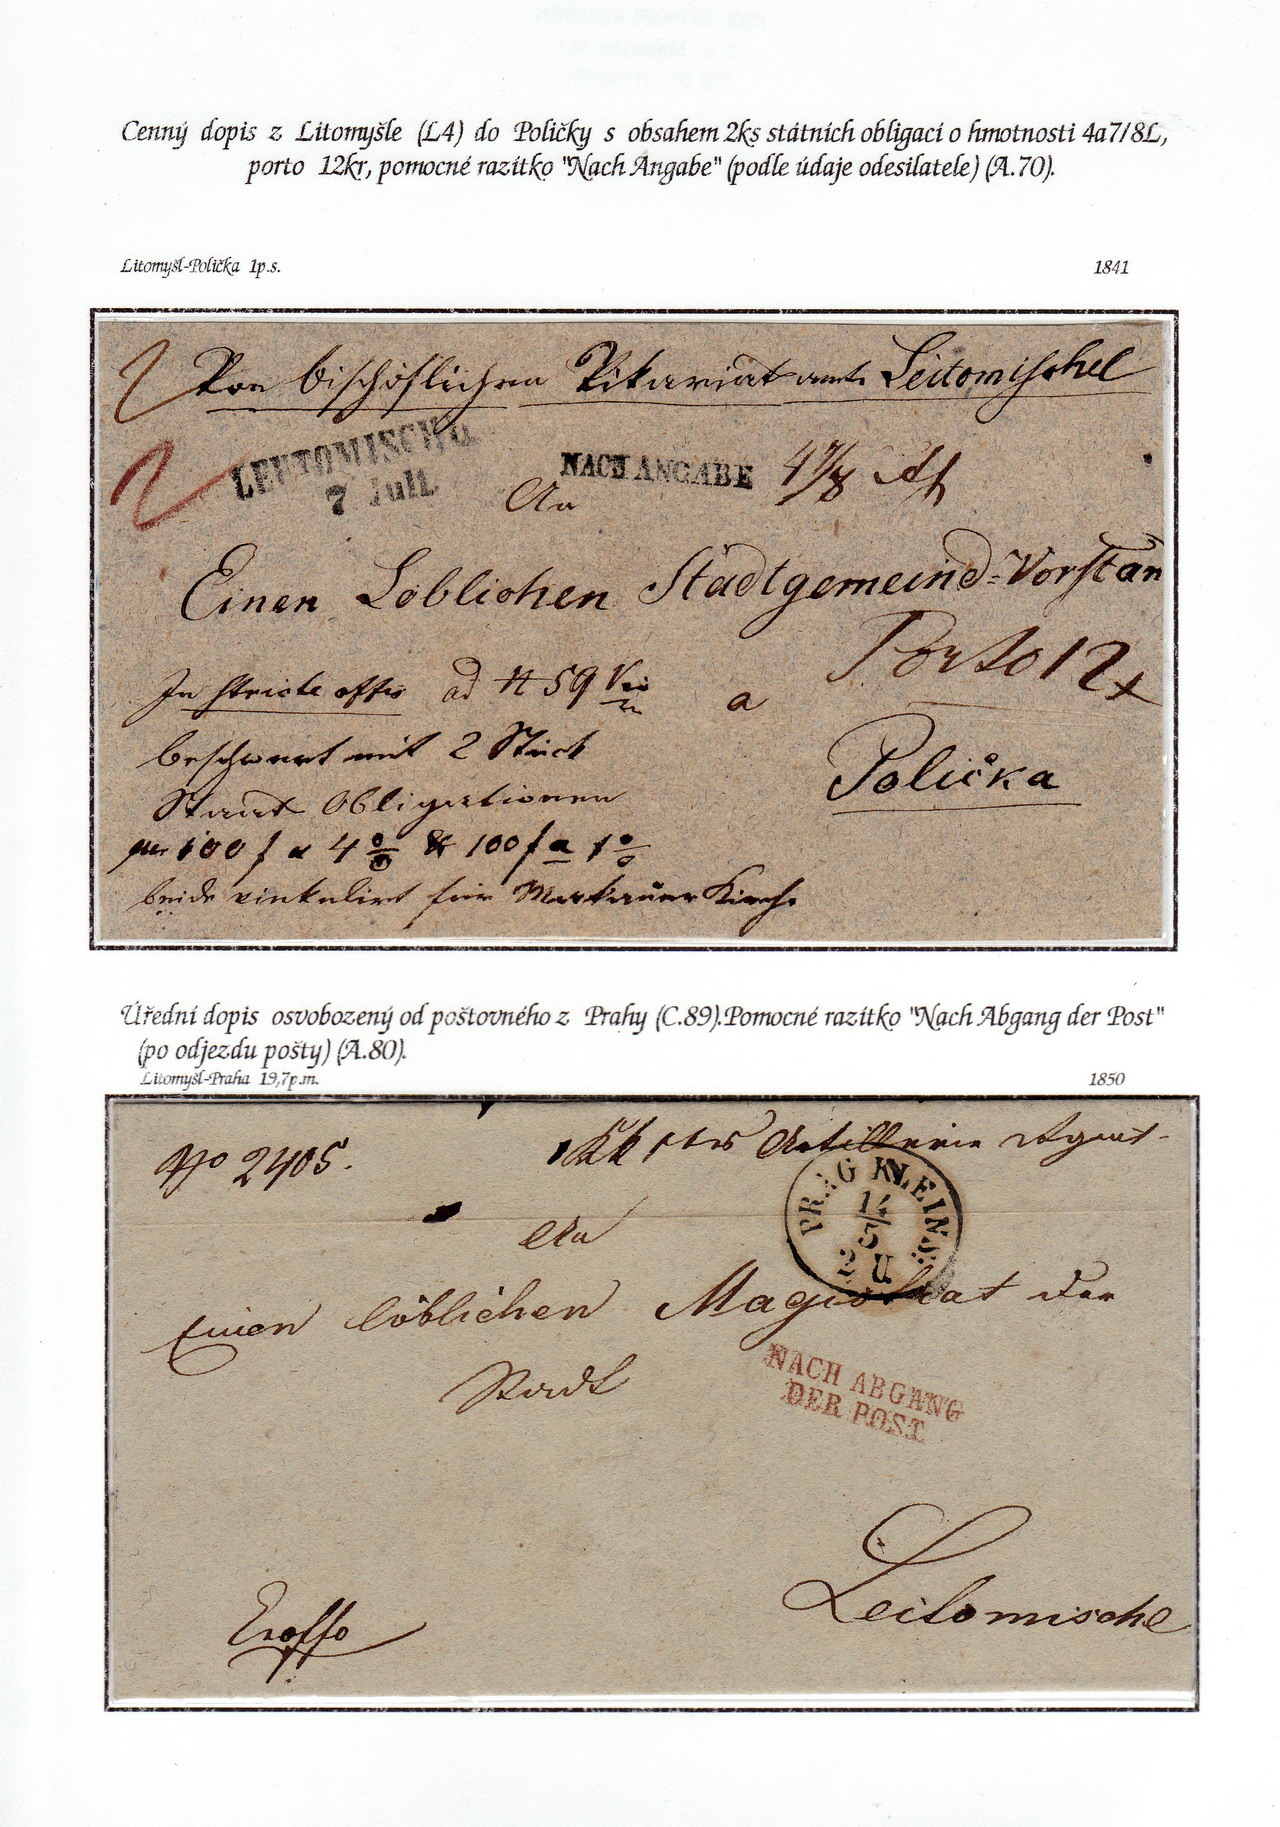 Cenný dopis z Litomyšle (L4) do Poličky s obsahem 2ks státních obligací o hmotnosti 4a7/8L,
porto 12kr, pomocné razítko "Nach Angabe" (podle údaje odesilatele) (A.70).
Litomyšl-Polička 1p.s.
1841
Von bischöflichen Vikariatsamte Leitomischel
LEUTOMISCHL
7 Juli.
NACH ANGABE
4 7/8
An
Einen Löblichen Stadtgemeind=Vorstan
Porto 12 x
In stricte offo ad N 59
a
beschwert mit 2 Stück
Polička
Staats Obligationen
per 100 f a 4 % & 100 f a 1 %
beide vinkulirt für Kirche
Úřední dopis osvobozený od poštovného z Prahy (C.89).Pomocné razítko "Nach Abgang der Post"
(po odjezdu pošty) (A.80).
Litomyšl-Praha 19,7p.m.
1850
No 2405.
KK Artillerie
PRAG KLEINS:
14
5
2 U
An
Einen löblichen Magistrat der
Stadt
NACH ABGANG
DER POST
Leitomischl
Exoffo